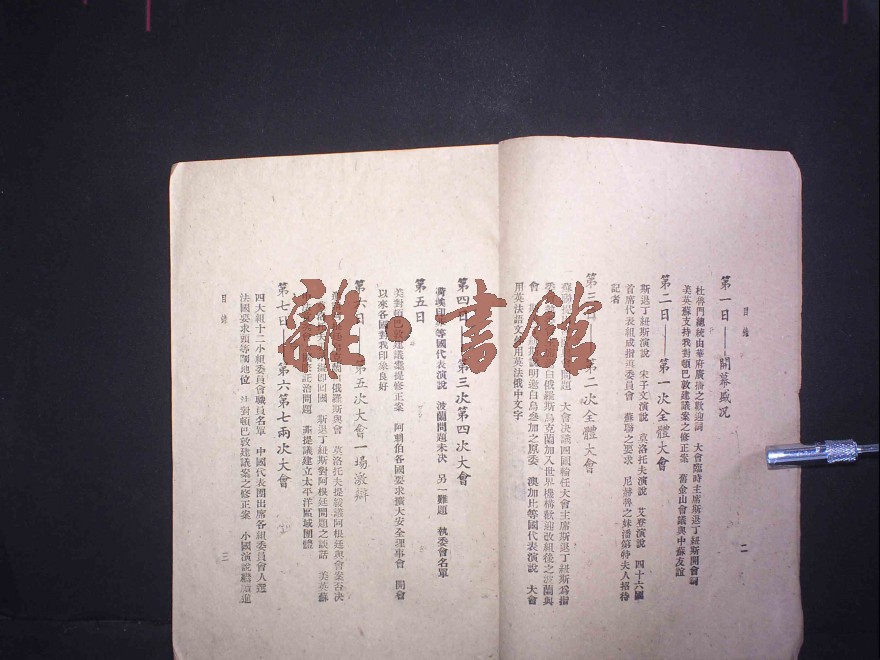 目錄
第一日——開幕盛況
杜魯門總統由華府廣播之歡迎詞 大會臨時主席斯退丁紐斯開會詞
美英蘇支持我對頓巴敦建議案之修正案 舊金山會議與中蘇友誼
第二日——第一次全體大會
斯退丁紐斯演說 宋子文演說 莫洛托夫演說 艾登演說 四十六國
首席代表組成指導委員會 蘇聯之要求 尼赫魯之妹潘第特夫人招待
記者
第三 第二次全體大會
問題 大會決議四國輪任大會主席斯退丁紐斯為指
白俄羅斯烏克蘭加入世界機構歡迎改組後之波蘭與
會 說明邀白烏參加之原委 澳加比等國代表演說 大會
用英法語文 用英法俄中文字
第四 第三次第四次大會
等國代表演說 波蘭問題未決 另一難題 執委會名單
第五日
美對頓巴敦建議處提修正案 阿剌伯各國要求擴大安全理事會 開會
以來各國對我印象良好
第六日 第五次大會一場激辯
白俄羅斯與會 莫洛托夫提緩議阿根廷與會案否決
即回國 斯退丁紐斯對阿根廷問題之談話 美英蘇
託治問題 燕提議建立太平洋區域團體
第七日——第六第七兩次大會
四大組十二小組委員會職員名單 中國代表團出席各組委員會人選
法國要求頭等國地位 對頓巴敦建議案之修正案 小國演說
目錄
二
三
雜·書館